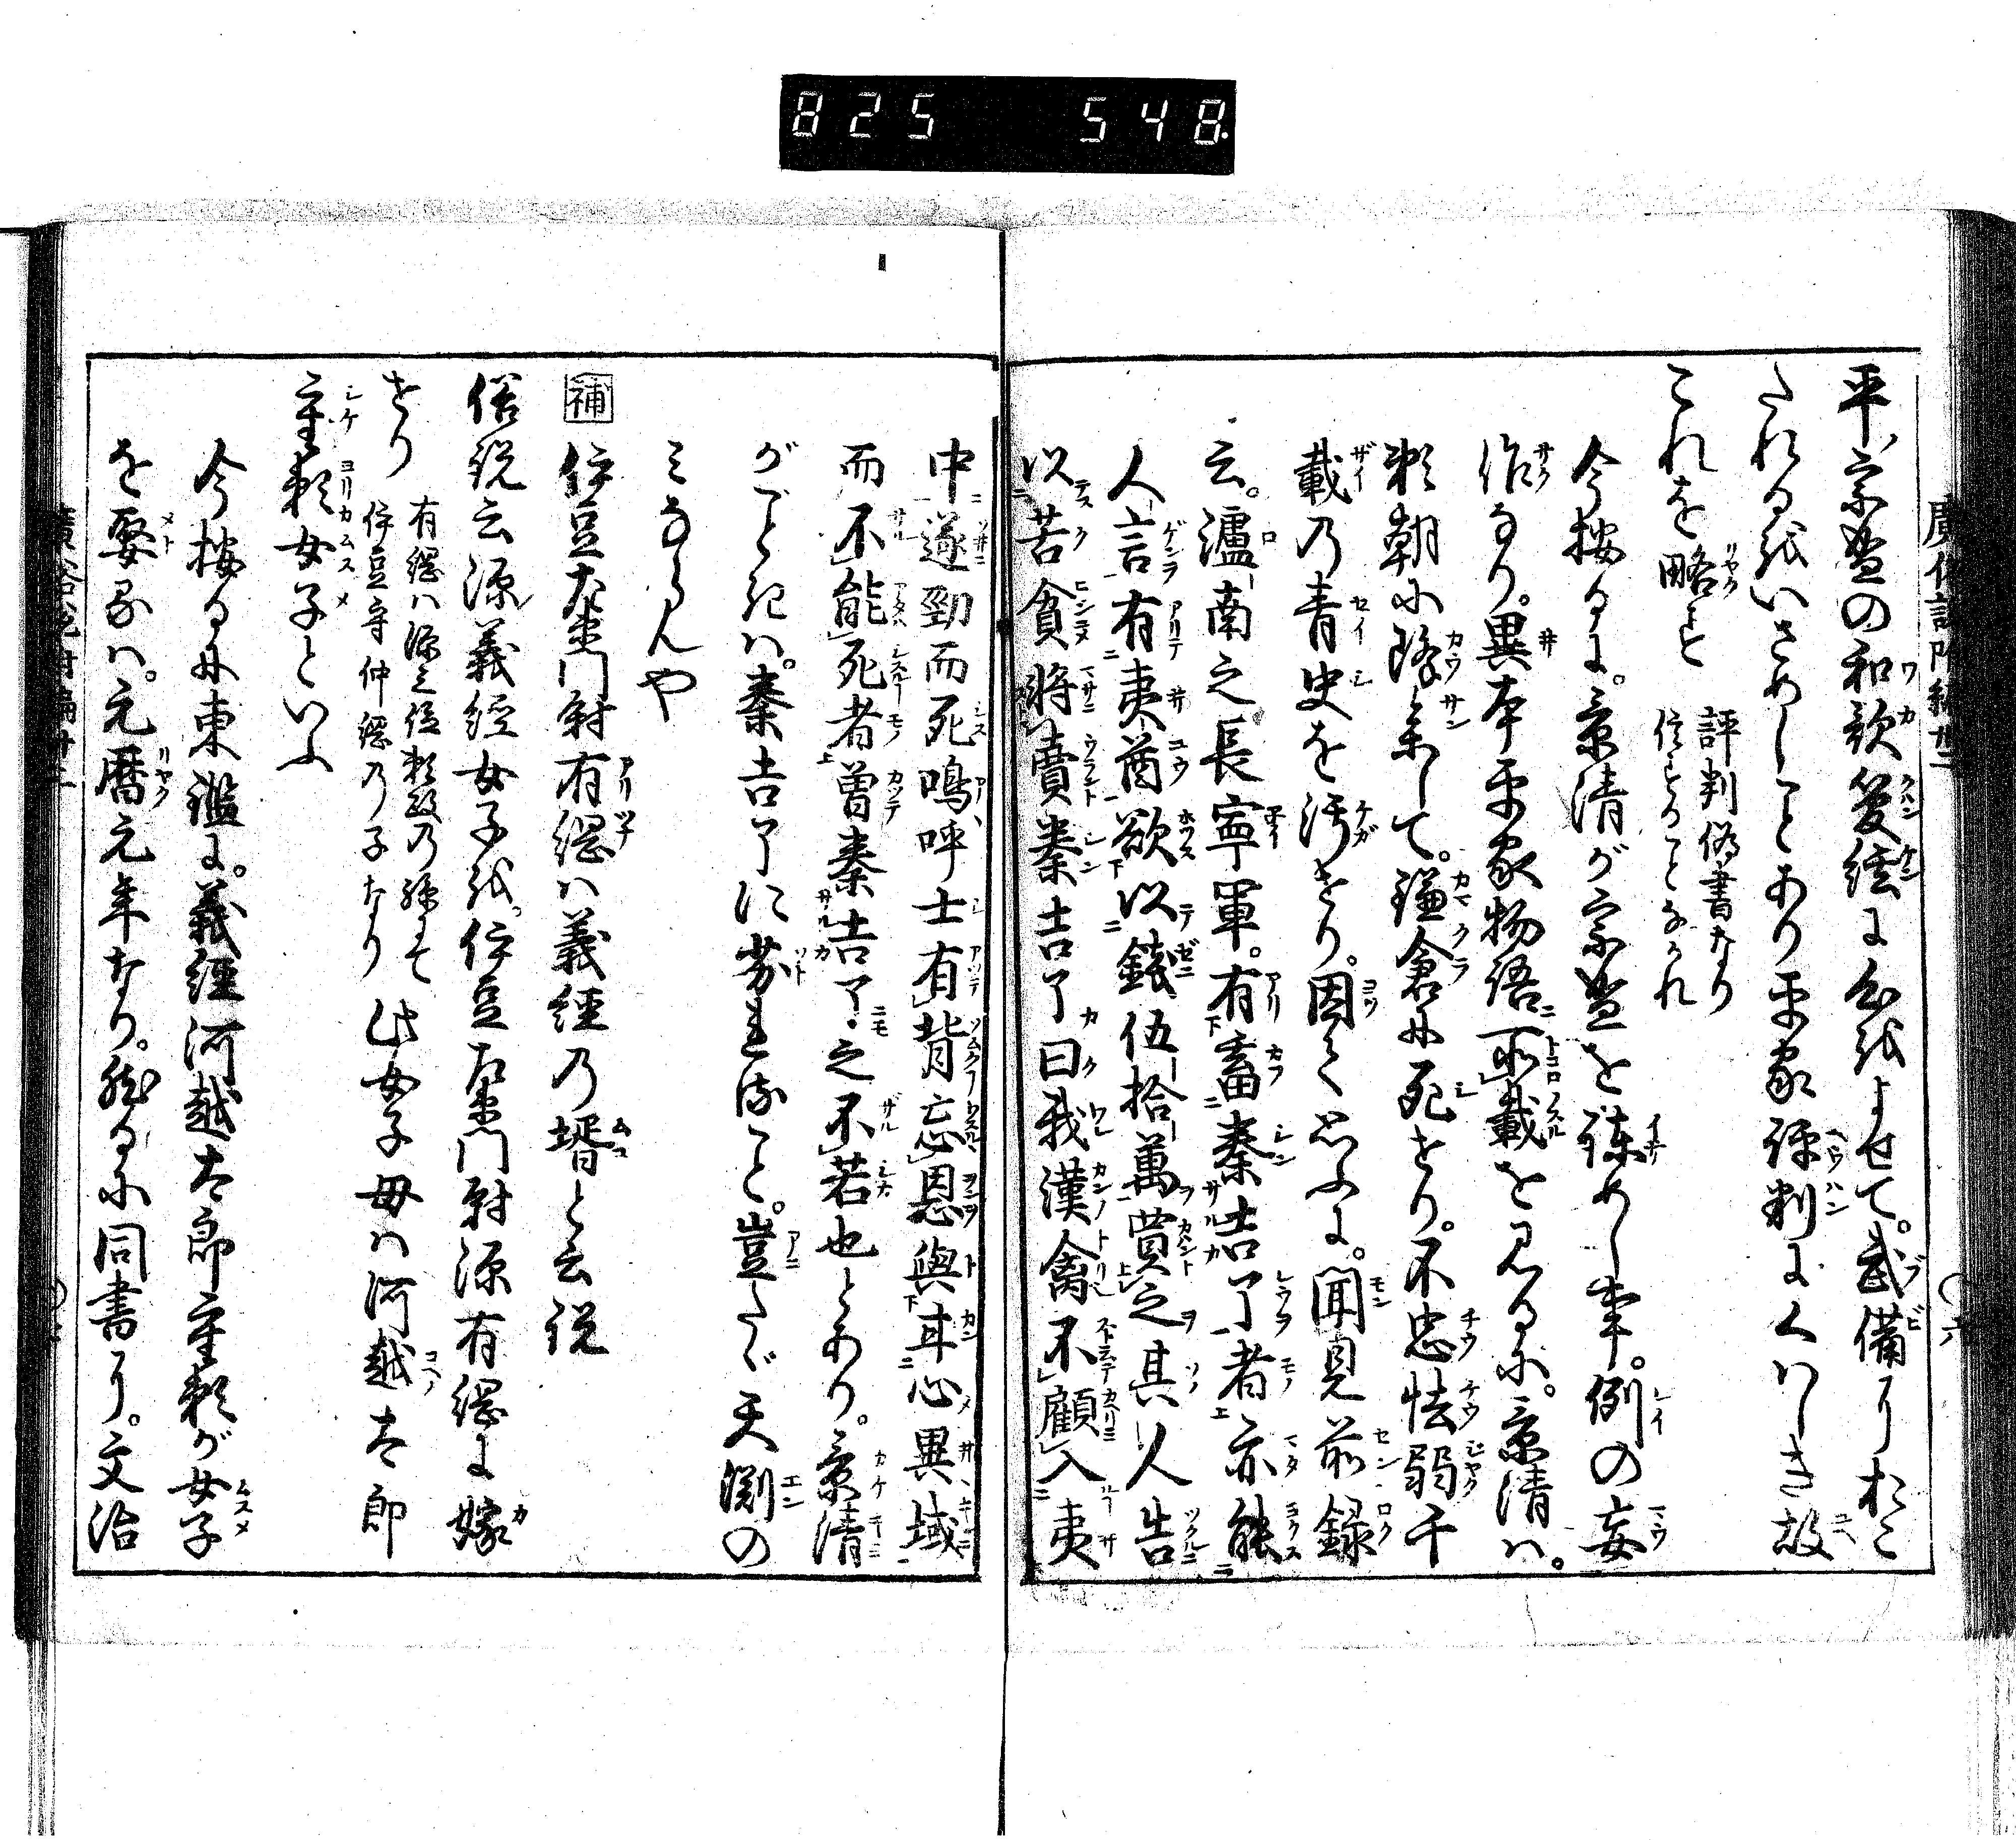 825 548
平宗盛の和歌管絃に心をよせて。武備におこ
たれるをいさめしことあり平家評判にくはしき故
これを略す 評判偽書なり
信ずることなかれ
今按るに。景清が宗盛を諫めし事。例の妄
作なり。異本平家物語所載を見るに。景清は。
頼朝に降参して。鎌倉に死せり。不忠怯弱千
載乃青史を汚せり。因て思ふに。聞見前録
云。瀘南之長寧軍。有畜秦吉了者亦能
人言有夷酋欲以錢伍拾萬買之其人告
以苦貧將賣秦吉了曰我漢禽不顧入夷
中遂勁而死嗚呼士有背忘恩與甘心異域
而不能死者曽秦吉了之不若也とあり。景清
がごときは。秦吉了に劣れること。豈たゞ天淵の
みならんや
補 伊豆左衛門尉有綱ハ義経乃壻と云説
俗説云源義經女子を。伊豆左衛門尉源有綱に嫁
せり 有綱ハ源三位頼政乃孫にて
伊豆守仲綱乃子なり 此女子母ハ河越太郎
重頼女子といふ
今按るに東鑑に。義経河越太郎重頼が女子
を娶るハ。元暦元年なり。然るに同書に。文治